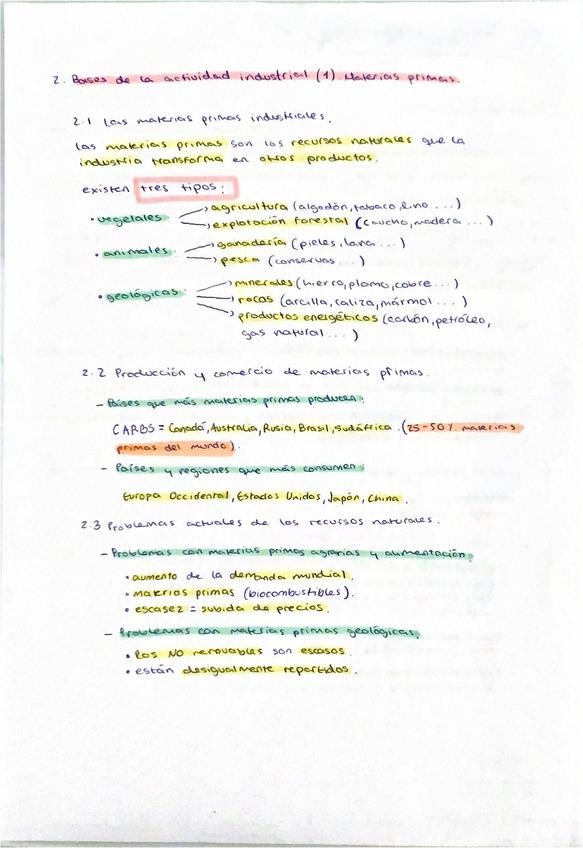 2. Bases de la actividad industrial (1) Materias primas.
2.1 Las materias primas industriales.
Las materias primas son los recursos naturales que la
industria transforma en otros productos.
existen tres tipos:
• vegetales → agricultura (algodón, tabaco, lino ...)
→ explotación forestal (caucho, madera ...)
• animales → ganadería (pieles, lana ...)
→ pesca (conservas ...)
• geológicas → minerales (hierro, plomo, cobre ...)
→ rocas (arcilla, caliza, mármol ...)
→ productos energéticos (carbón, petróleo,
gas natural ...)
2.2 Producción y comercio de materias primas.
- Países que más materias primas producen:
CARBS = Canadá, Australia, Rusia, Brasil, Sudáfrica. (25-50% materias
primas del mundo).
- Países y regiones que más consumen:
Europa Occidental, Estados Unidos, Japón, China.
2.3 Problemas actuales de los recursos naturales.
- Problemas con materias primas agrarias y alimentación.
• aumento de la demanda mundial.
• materias primas (biocombustibles).
• escasez = subida de precios.
- Problemas con materias primas geológicas.
• Los NO renovables son escasos.
• están desigualmente repartidos.